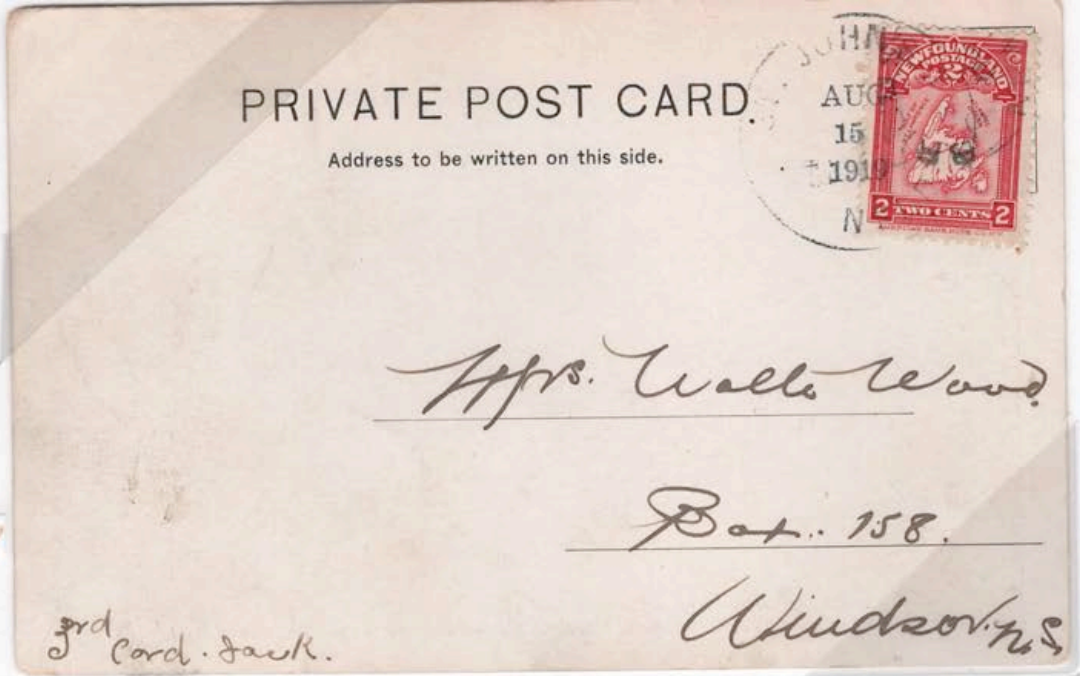 PRIVATE POST CARD.
Address to be written on this side.
JOHN
AUG
15
1919
N
NEWFOUNDLAND
POSTAGE
2
2 TWO CENTS 2
Mrs. Walter Wood.
Box. 158.
Windsor. N.S.
3rd
Card. Jack.